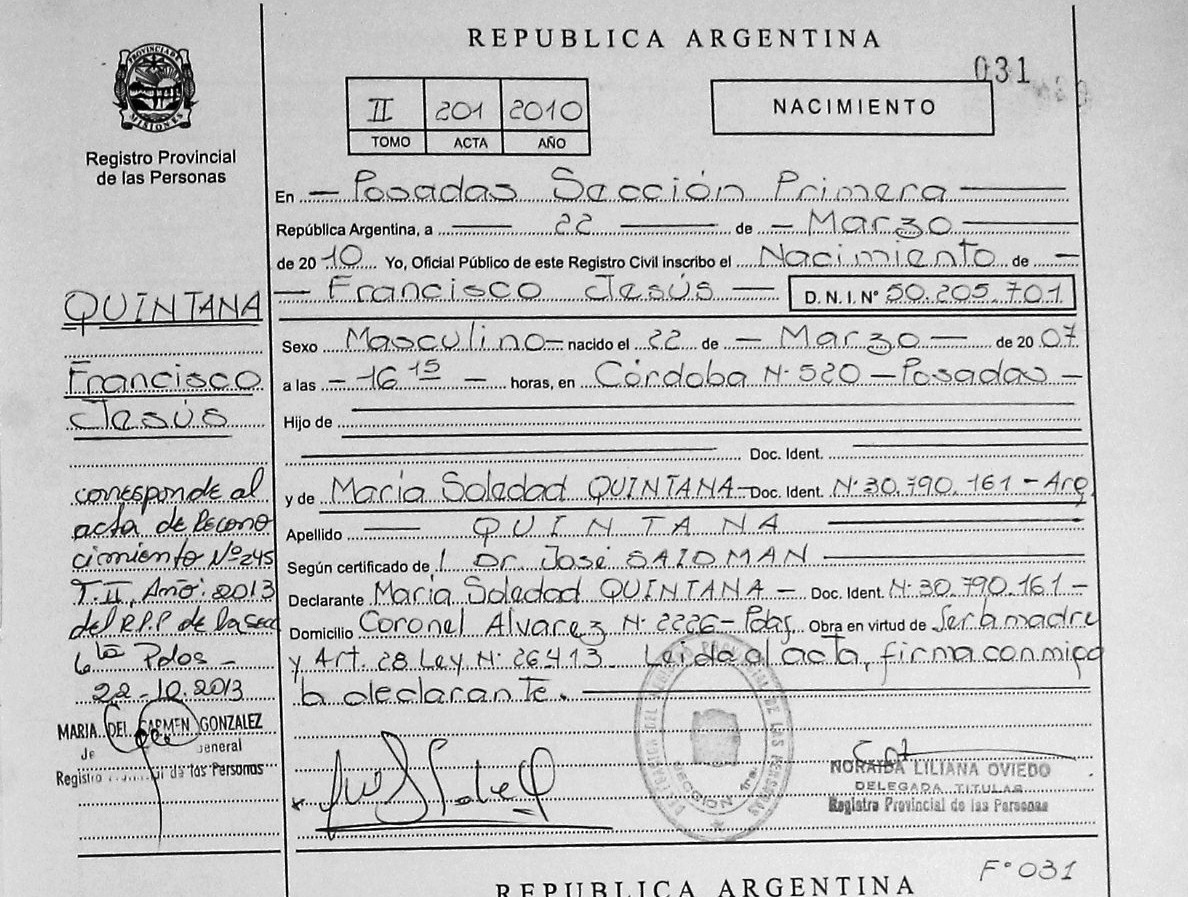 REPUBLICA ARGENTINA
031
PROVINCIA DE MISIONES
Registro Provincial
de las Personas
II 201 2010
TOMO ACTA AÑO
NACIMIENTO
En Posadas Sección Primera
República Argentina, a 22 de Marzo
de 2010 Yo, Oficial Público de este Registro Civil inscribo el Nacimiento de
Francisco Jesús D.N.I. Nº 50.205.701
Sexo Masculino nacido el 22 de Marzo de 2007
a las 16 15 horas, en Córdoba Nº 520 - Posadas
Hijo de
Doc. Ident.
y de María Soledad QUINTANA Doc. Ident. Nº 30.790.161 - Arg.
Apellido QUINTANA
Según certificado de Dr. José
Declarante María Soledad QUINTANA - Doc. Ident. Nº 30.790.161 -
Domicilio Coronel Alvarez Nº 2226 - Pdas Obra en virtud de Ser la madre
y Art. 28 Ley Nº 26413 Leida el acta, firma conmigo
la declarante.
QUINTANA
Francisco
Jesús
corresponde al
acta de Recono
cimiento Nº 245
T. II, Año: 2013
del R.P.P de la Secc
6ta Pdas -
22-10-2013
MARIA DEL CARMEN GONZALEZ
General
Registro de las Personas
SECCION 1ra.
NORAIDA LILIANA OVIEDO
DELEGADA TITULAR
Registro Provincial de las Personas
Fº 031
REPUBLICA ARGENTINA